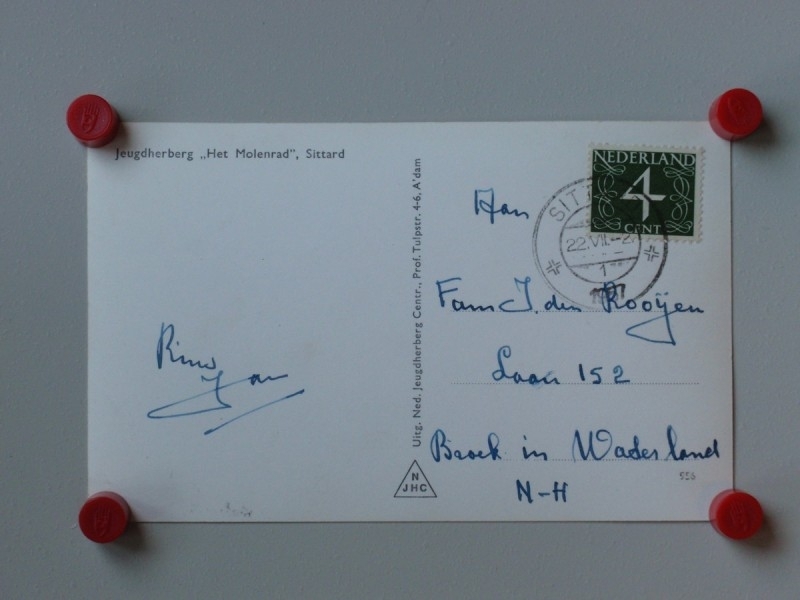 Jeugdherberg „Het Molenrad”, Sittard
Uitg. Ned. Jeugdherberg Centr., Prof. Tulpstr. 4-6, A'dam
N
JHC
NEDERLAND
4
CENT
SIT
22.VII.-2
1
Aan
Fam J. den Rooÿen
Laan 152
Broek in Waderland
N-H
556
Jan